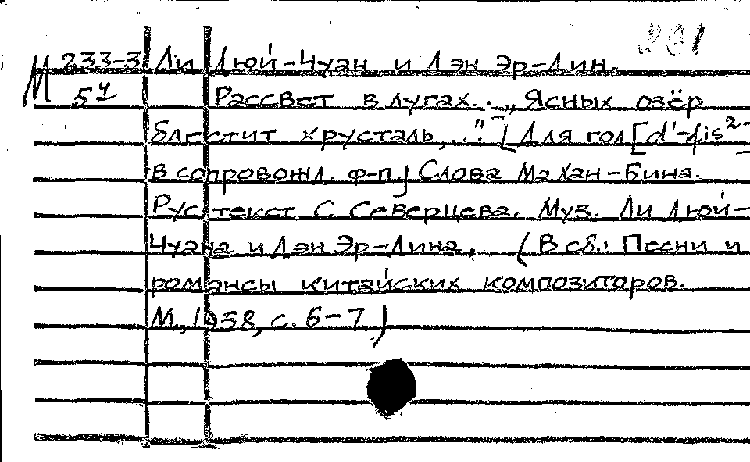 М 233-3 Ли Люй-Чуан и Лэн Эр-Лин.
57 Рассвет в лугах. „Ясных озёр
блестит хрусталь, .." [Для гол [d'-fis²-
в сопровожд. ф-п.] Слова Ма Хан-Бина.
Рус. текст С. Северцева. Муз. Ли Люй-
Чуана и Лэн Эр-Лина. (В сб.: Песни и
романсы китайских композиторов.
М., 1958, с. 6-7.)